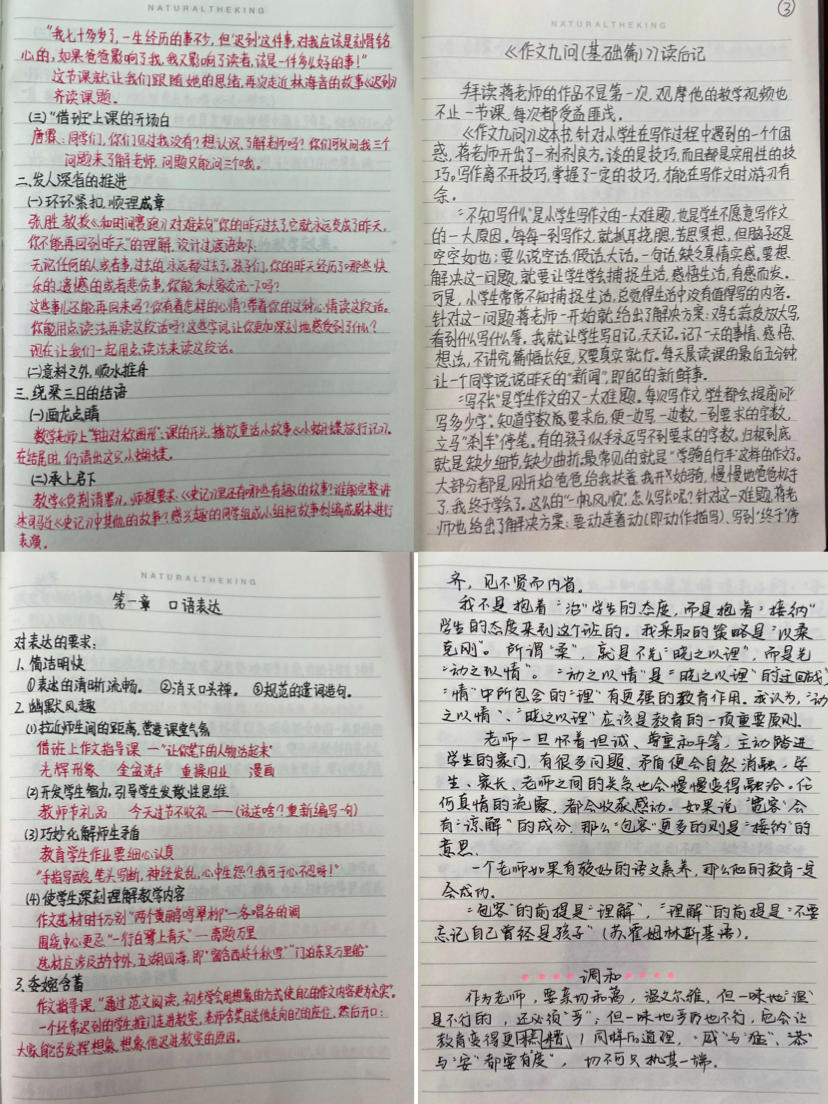 NATURALTHEKING
"我七十多岁了,一生经历的事不少,但"迟到"这件事,对我应该是刻骨铭
心的,如果爸爸影响了我,我又影响了读者,该是一件多么好的事!"
这节课就让我们跟随她的思绪,再次走近林海音的故事《迟到》
齐读课题。
(三)"借班"上课的开场白
唐霖:同学们,你们见过我没有?想认识、了解老师吗?你们可以问我三个
问题来了解老师,问题只能问三个哦。
二、发人深省的推进
(一)环环紧扣,顺理成章
张胜教教《和时间赛跑》对难点句"你的昨天过去了,它就永远变成了昨天,
你不能再回到昨天"的理解,设计过渡语如下:
无论任何的人或者事,过去的,永远都过去了。孩子们,你的昨天经历了哪些快
乐的、遗憾的或者悲伤事,你能和大家交流一下吗?
这些事儿还能再回来吗?你有着怎样的心情?带着你的这种心情读这段话。
你能用点读法再读这段话吗?这些字词让你更加深刻地感受到了什么?
现在让我们一起用点读法来读这段话。
(二)意料之外,顺水推舟
三、绕梁三日的结语
(一)画龙点睛
数学老师上"轴对称图形":课的开头,播放童话小故事《小蝴蝶旅行记》,
在结尾时,仍请出这只小蝴蝶。
(二)承上启下
教学《负荆请罪》,师提要求:《史记》里还有哪些有趣的故事?谁能完整讲
述司马迁《史记》中其他的故事?感兴趣的同学组成小组把故事创编成剧本进行
表演。
③
NATURALTHEKING
《作文九问(基础篇)》读后记
拜读蒋老师的作品不是第一次,观摩他的教学视频也
不止一节课,每次都受益匪浅。
《作文九问》这本书,针对小学生在写作过程中遇到的一个个困
惑,蒋老师开出了一剂剂良方。谈的是技巧,而且都是实用性的技
巧。写作离不开技巧,掌握了一定的技巧,才能在写作文时游刃有
余。
"不知写什么"是小学生写作文的一大难题,也是学生不愿意写作文
的一大原因。每每一到写作文,就抓耳挠腮,苦思冥想,但脑子还是
空空如也;要么说空话,假话,大话。一句话,缺乏真情实感。要想
解决这一问题,就要让学生学会捕捉生活,感悟生活,有感而发。
可是,小学生常常不知捕捉生活,总觉得生活中没有值得写的内容。
针对这一问题,蒋老师一开始就给出了解决方案:鸡毛蒜皮放大写,
看到什么写什么等。我就让学生写日记,天天记。记下一天的事情、感悟、
想法,不讲究篇幅长短,只要真实就行。每天晨读课的最后五分钟
让一个同学说说昨天的"新闻",即自己的新鲜事。
"写不长"是学生作文的又一大难题。每次写作文,学生都会提前问"
写多少字"。知道字数底要求后,便一边写,一边数,一到要求的字数,
立马"刹车"停笔。有的孩子似乎永远写不到要求的字数。归根到底
就是缺少细节,缺少曲折,最常见的就是"学骑自行车"这样的作文了。
大部分都是刚开始爸爸给我扶着,我开始骑,慢慢地爸爸松手
了,我终于学会了。这么的"一帆风顺",怎么写长呢?针对这一难题,蒋老
师也给出了解决方案:要动连着动(即动作描写)、写到"终于"停
NATURALTHEKING
第一章 口语表达
对表达的要求:
1. 简洁明快
①表达的清晰流畅。 ②消灭口头禅。 ③规范的遣词造句。
2. 幽默风趣
(1)拉近师生间的距离,营造课堂气氛
借班上作文指导课 —"让你笔下的人物活起来"
光辉形象 金盆洗手 重操旧业 漫画
(2)开发学生智力,引导学生发散性思维
教师节礼品 今天过节不收礼——(该送啥?重新编写一句)
(3)巧妙化解师生矛盾
教育学生作业要细心认真
"手指写酸,笔头写断,神经发乱,心中生怨?我可于心不忍呀!"
(4)使学生深刻理解教学内容
作文选材时千万别"两个黄鹂鸣翠柳"—各唱各的调
围绕中心,更忌"一行白鹭上青天"—离题万里
选材应涉及古今中外,五湖四海,即"窗含西岭千秋雪""门泊东吴万里船"
3. 委婉含蓄
作文指导课"通过范文阅读,初步学会用想象的方式使自己的作文内容更为充实"。
一个经常迟到的学生推门走进教室,老师含笑目送他走向自己的座位,然后开口:
大家能否发挥想象,想象他迟进教室的原因。
齐,见不贤而内省。
我不是抱着"治"学生的态度,而是抱着"接纳"
学生的态度来到这个班的。我采取的策略是"以柔
克刚"。所谓"柔",就是不先"晓之以理",而是先
"动之以情"。"动之以情"是"晓之以理"的迂回战,
"情"中所包含的"理"有更强的教育作用。我认为,"动
之以情"、"晓之以理"应该是教育的一项重要原则。
老师一旦怀着坦诚、尊重和平等,主动踏进
学生的家门,有很多问题、矛盾便会自然消融。学
生、家长、老师之间的关系也会慢慢变得融洽。任
何真情的流露,都会收获感动。如果说"宽容"会
有"谅解"的成分,那么"包容"更多的则是"接纳"的
意思。
一个老师如果有较好的语文素养,那么他的教育一定
会成功。
"包容"的前提是"理解","理解"的前提是"不要
忘记自己曾经是孩子"(苏霍姆林斯基语)。
调和
作为老师,要亲切和蔼,温文尔雅,但一味地"温"
是不行的,还必须"厉";但一味地"厉"也不行,它会让
教育变得更糟糕,同样的道理,"威"与"猛"、"恭"
与"安"都要有度",切不可只执其一端。